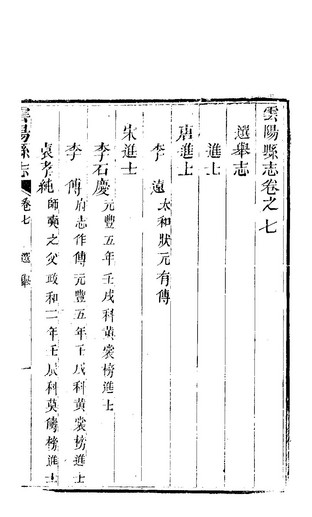 雲陽縣志卷之七
選舉志
進士
唐進士
李遠 太和狀元有傳
宋進士
李石慶 元豐五年壬戌科黃裳榜進士
李傅 府志作傳元豐五年壬戌科黃裳榜進士
袁孝純 師奭之父政和二年壬辰科莫儔榜進士
雲陽縣志 卷七 選舉 一